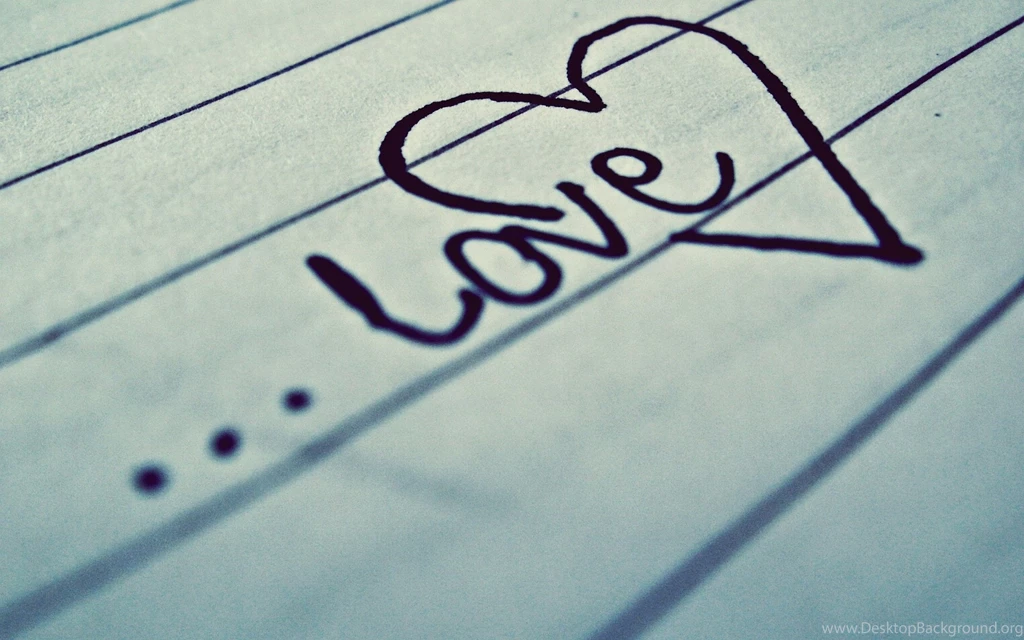 ...Love
www.DesktopBackground.org